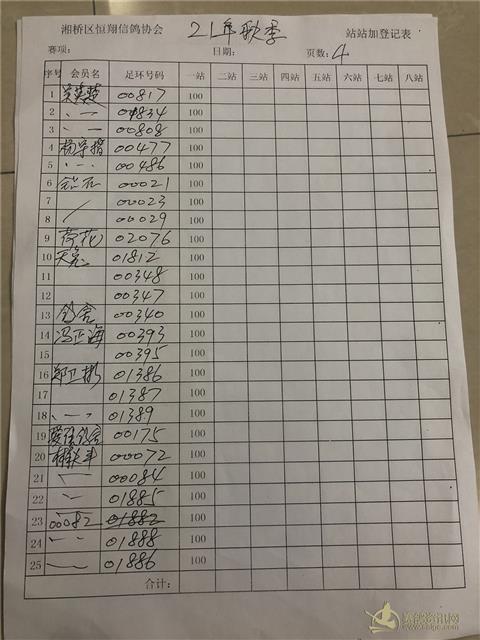 湘桥区恒翔信鸽协会 21年秋季 站站加登记表
赛项: 日期: 页数: 4
序号 会员名 足环号码 一站 二站 三站 四站 五站 六站 七站 八站
1 00817 100
2 01834 100
3 00808 100
4 00477 100
5 00486 100
6 钻石 00021 100
7 00023 100
8 00029 100
9 荷花 02076 100
10 01812 100
11 00348 100
12 00347 100
13 00340 100
14 冯正海 00393 100
15 00395 100
16 郑卫彬 01386 100
17 01387 100
18 01389 100
19 00175 100
20 00072 100
21 00084 100
22 01885 100
23 00082 01882 100
24 01888 100
25 01886 100
合计: